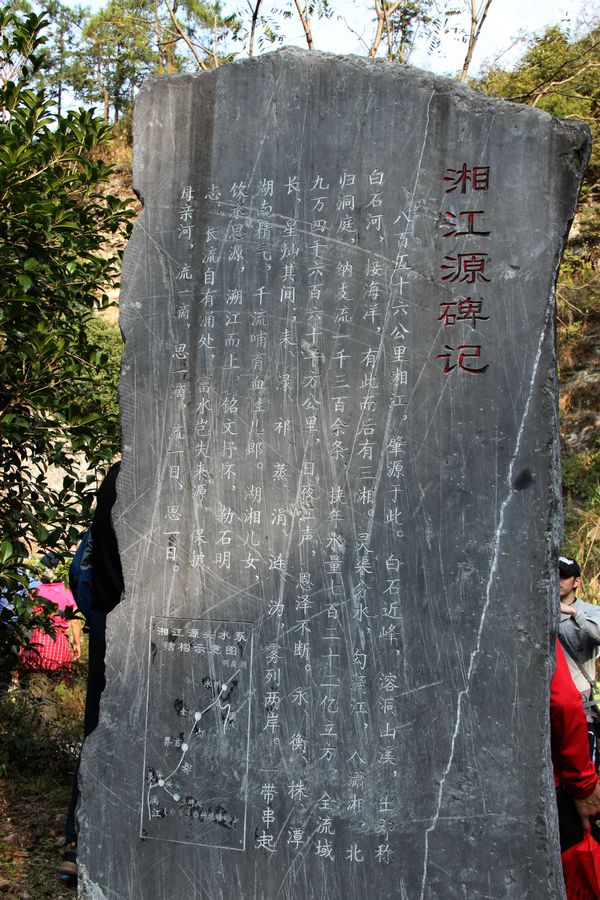 湘江源碑记
八百五十六公里湘江，肇源于此。白石近峰，溶洞山溪，土聊称
白石河，接海洋，有此而后有三湘。灵渠分水，勾漓江，入潇湘，北
归洞庭，纳支流一千三百余条，挟年水量七百二十二亿立方，全流域
九万四千六百六十平方公里，日夜声，恩泽不断。永、衡、株、潭、
长，星灿其间；耒、渌、祁、蒸、涓、涟、沩，雾列两岸。一带串起
湖南精气，千流哺育血性儿郎。湖湘儿女，
饮水思源，溯江而上，铭文抒怀，勒石明
志：长流自有涌处，富水岂失来源，保护
母亲河，流一滴，思一滴，流一日，思一日。
湘江源头水系
结构示意图